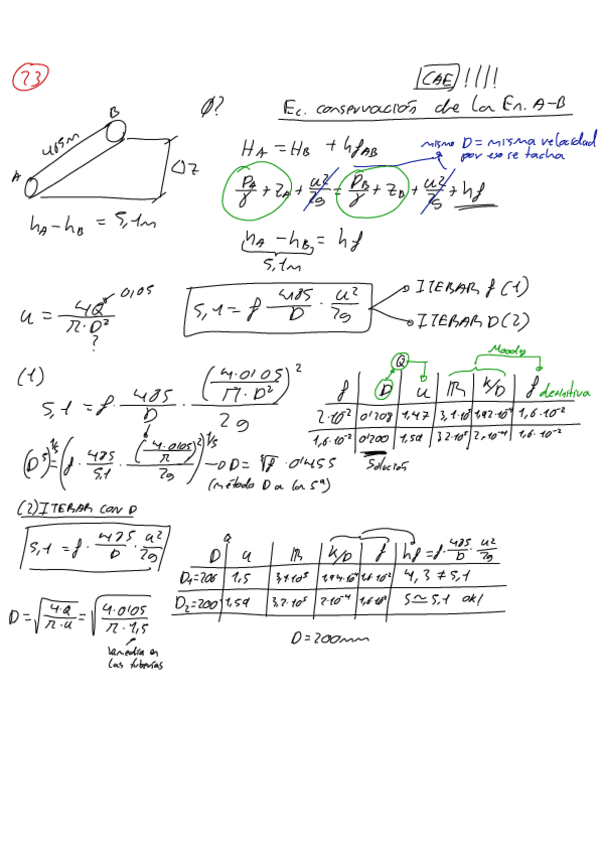 23
CAE !!!!
Ø?
Ec. conservación de la En. A-B
B
485m
A
ΔZ
hA - hB = 5,1m
HA = HB + hfAB
mismo D = misma velocidad
por eso se tacha
PA/γ + ZA + u²/2g = PB/γ + ZB + u²/2g + hf
hA - hB = hf
5,1m
u = 4Q/π·D²
0,05
?
5,1 = f · 485/D · u²/2g
ITERAR f (1)
ITERAR D (2)
(1)
5,1 = f · 485/D · (4·0'05/π·D²)²/2g
(D⁵)^1/5 = (f · 485/5,1 · (4·0'05/π)²/2g)^1/5 → D = ⁵√f · 0'455
(método D a la 5ª)
Q
Moody
f D u R k/D f definitiva
2·10⁻² 0'208 1,47 3,1·10⁵ 1,92·10⁻⁴ 1,6·10⁻²
1,6·10⁻² 0'200 1,59 3,2·10⁵ 2·10⁻⁴ 1,6·10⁻²
Solución
(2) ITERAR CON D
5,1 = f · 485/D · u²/2g
D = √4·Q/π·u = √4·0'05/π·1,5
la media en
las tuberías
D u R k/D f hf = f · 485/D · u²/2g
D1=206 1,5 3,1·10⁵ 1,94·10⁻⁴ 1,6·10⁻² 4,3 ≠ 5,1
D2=200 1,59 3,2·10⁵ 2·10⁻⁴ 1,6·10⁻² 5 ≃ 5,1 ok!
D = 200mm